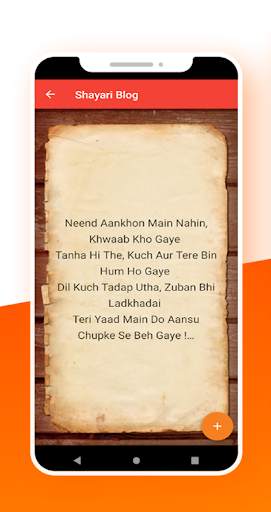 Shayari Blog
Neend Aankhon Main Nahin,
Khwaab Kho Gaye
Tanha Hi The, Kuch Aur Tere Bin
Hum Ho Gaye
Dil Kuch Tadap Utha, Zuban Bhi
Ladkhadai
Teri Yaad Main Do Aansu
Chupke Se Beh Gaye !...